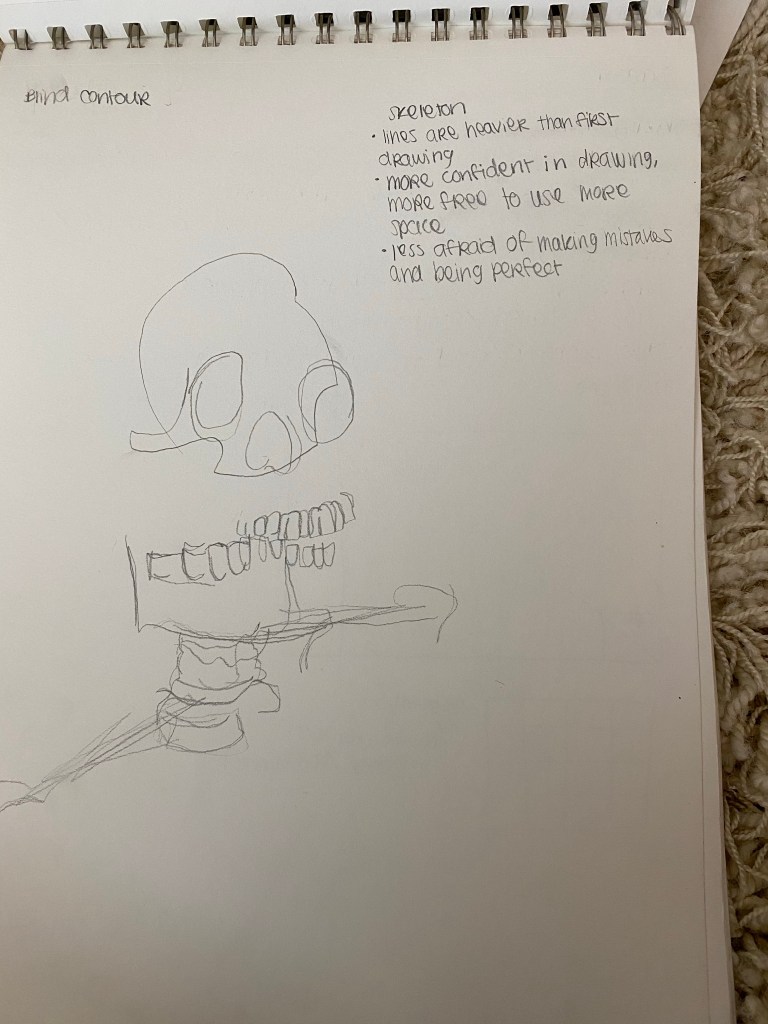 Blind contour
skeleton
• lines are heavier than first
drawing
• more confident in drawing,
more free to use more
space
• less afraid of making mistakes
and being perfect